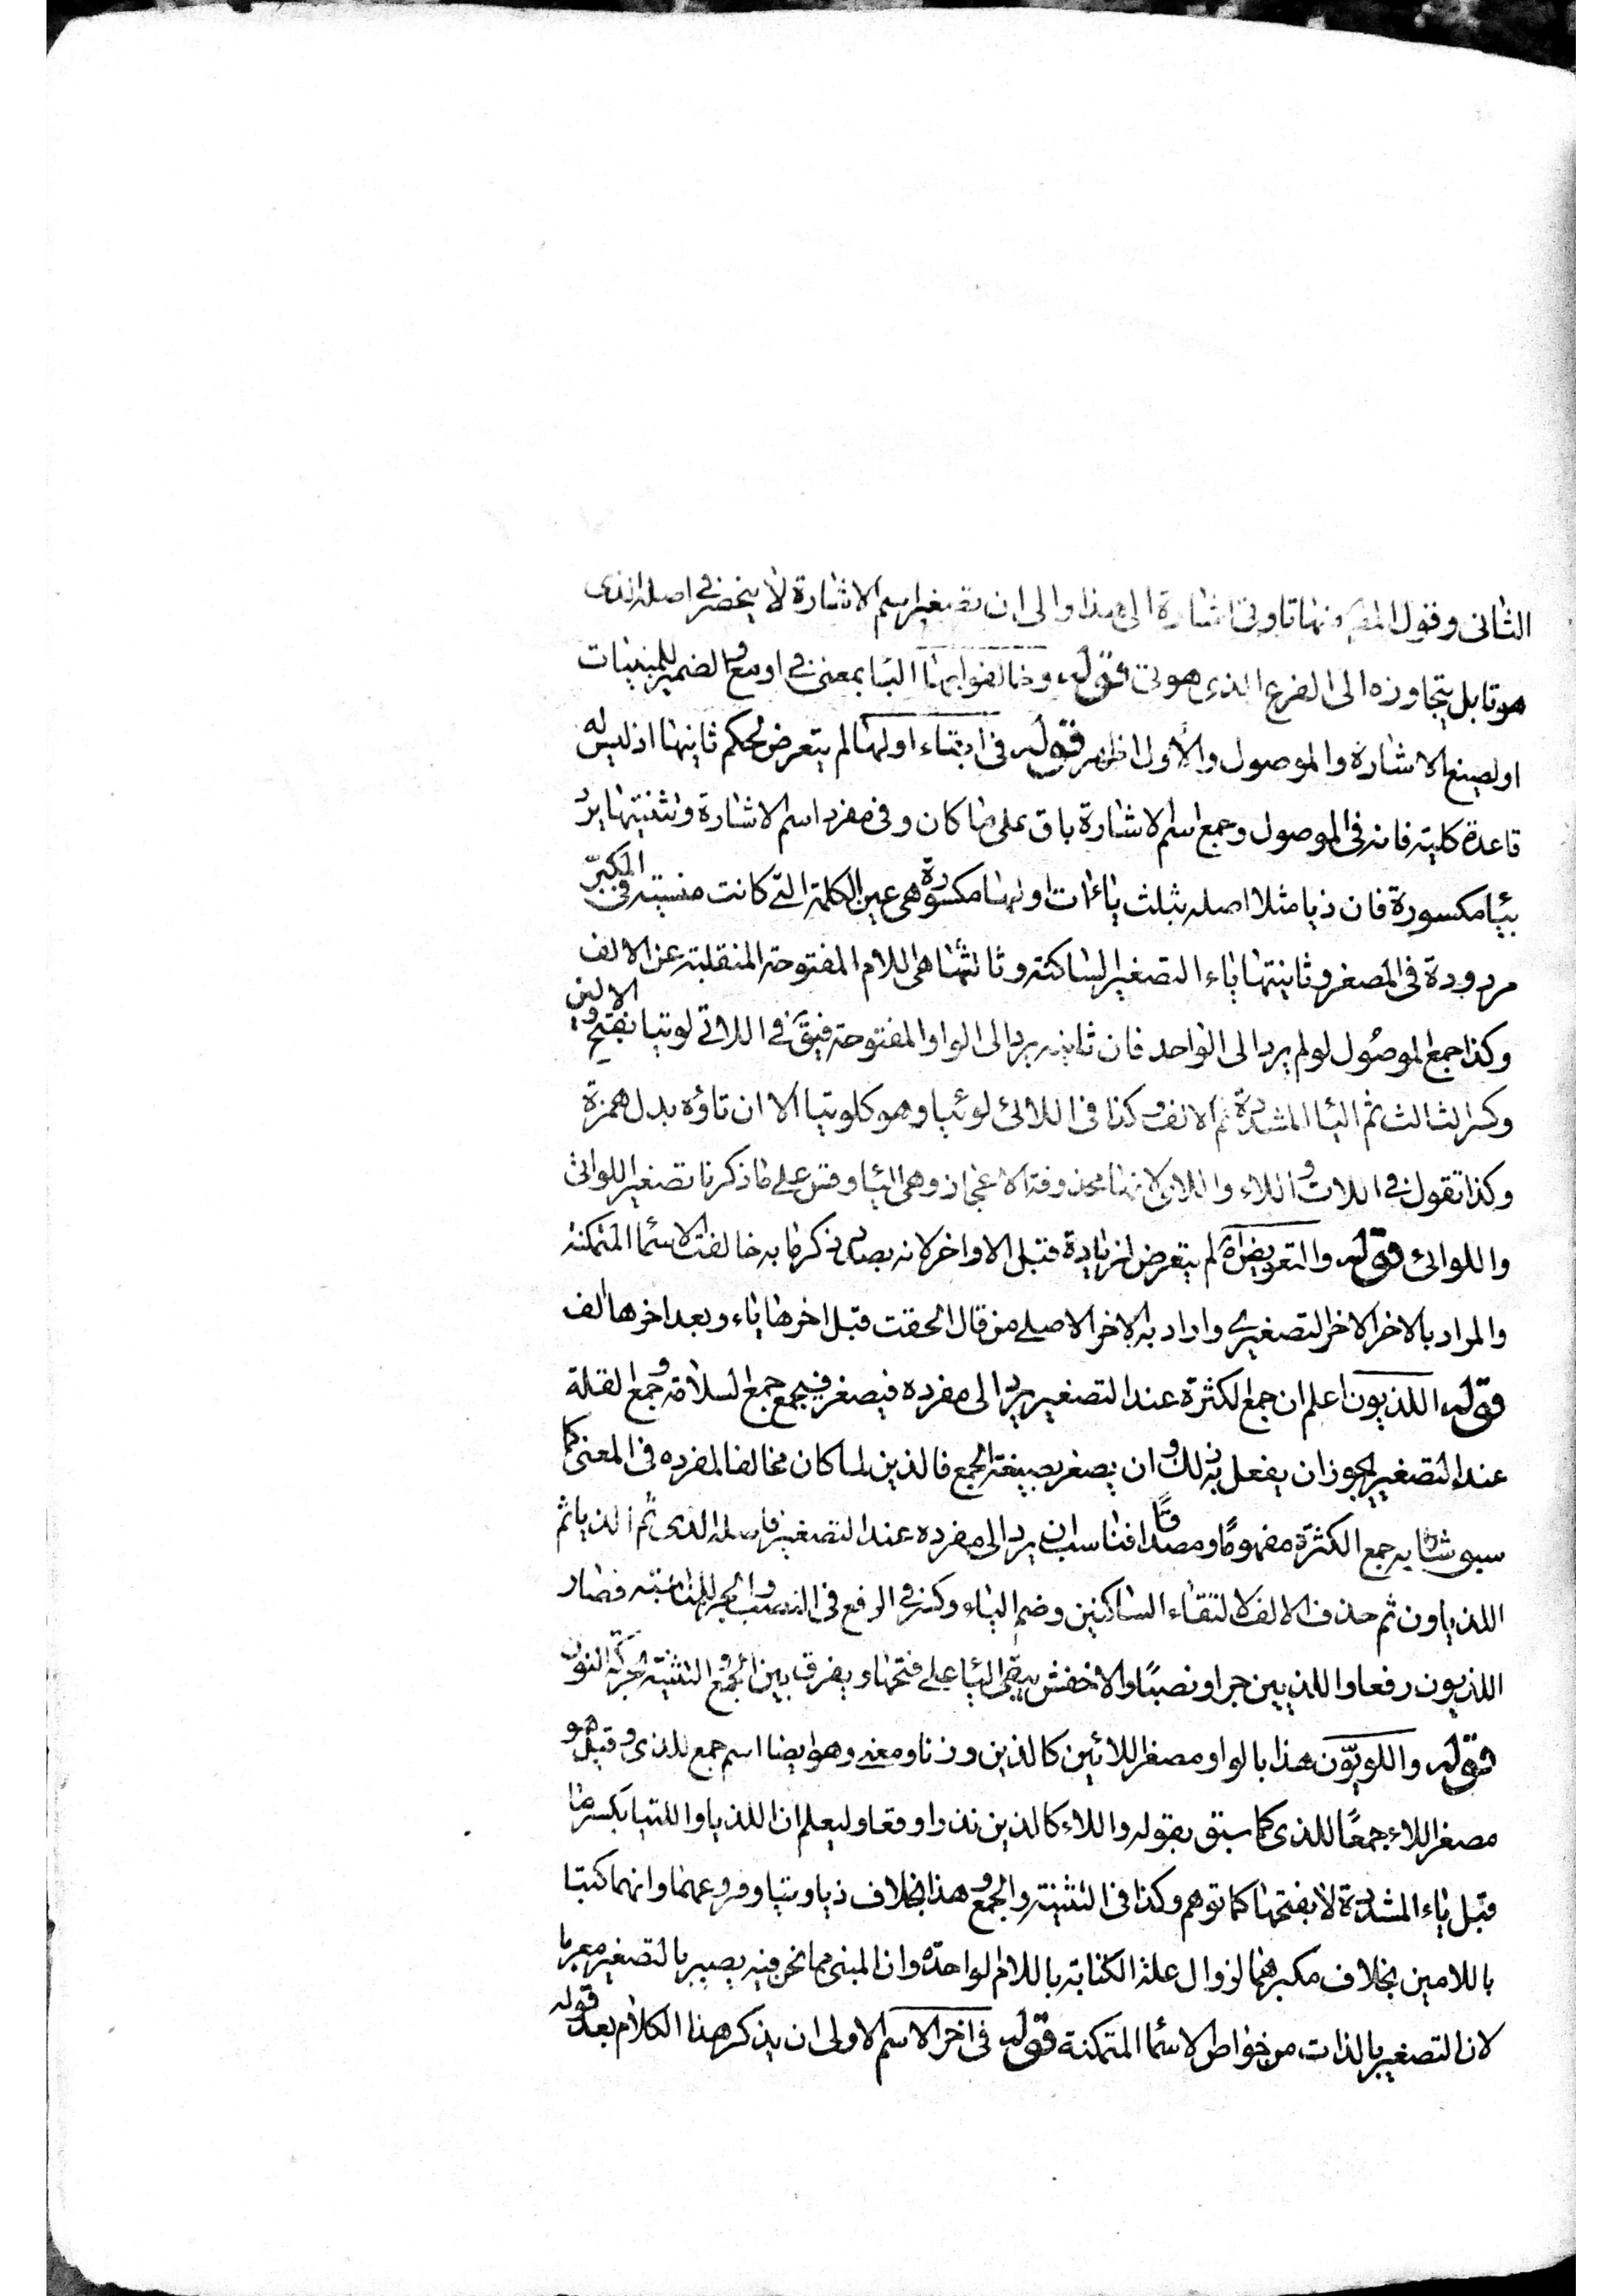 الثانى وقول المص ونها تاوتى اشارة الى هذا والى ان تصغير اسم الاشارة لا ينحصر فى اصله الذى
هو تا بل يتجاوزه الى الفرع الذى هو تى قوله وخالفوا بها البا بمعنى فى او مع والضمير للمبنيات
او لصيغ الاشارة والموصول والاول اظهر قوله فى ابقاء اولها لم يتعرض لحكم ثانيها اذ ليس له
قاعدة كلية فانه فى الموصول وجمع اسم الاشارة باق على ما كان وفى مفرد اسم الاشارة وتثنيتها يرد
بيا مكسورة فان ذيا مثلا اصله بثلث ياءات اولها مكسورة هى عين الكلمة التى كانت منسية فى المكبّر
مردودة فى المصغر وثانيتها ياء التصغير الساكنة وثالثتها هى اللام المفتوحة المنقلبة عن الالف
وكذا جمع الموصول لو لم يرد الى الواحد فان ثانيه يرد الى الواو المفتوحة فيق فى اللاتى لويتيا بفتح الاولين
وكسر الثالث ثم اليا المشددة ثم الالف وكذا فى اللائى لوئيا وهو كلويتيا الا ان تاؤه بدل همزة
وكذا تقول فى اللات و اللاء واللاى لانها محذوفة الاعجاز وهى اليا وقس على ما ذكرنا تصغير اللواتى
واللوائى قوله والتعويض اه لم يتعرض لزيادة قبل الاواخر لانه بصدد ذكر ما به خالفت الاسما المتمكنة
والمراد بالاخر الاخر التصغيرى واراد به الاخر الاصلى من قال الحقت قبل اخرها ياء وبعد اخرها الف
قوله اللذيون اعلم ان جمع الكثرة عند التصغير يرد الى مفرده فيصغر فيجمع جمع السلامة و جمع القلة
عند التصغير يجوز ان يفعل به ذلك و ان يصغر بصيغة الجمع فالذين لما كان مخالفا لمفرده فى المعنى كما
سبق شابه جمع الكثرة مفهومًا ومصداقًا فناسب ان يرد الى مفرده عند التصغير فاصله الذى ثم الذيا ثم
اللذياون ثم حذف الالف لالتقاء الساكنين وضم الياء وكسر فى الرفع فى النصب والجر للمناسبة فصار
اللذيون رفعا واللذيين جرا ونصبًا والاخفش يبقى اليا على فتحها ويفرق بين الجمع و التثنية بحركة النون
قوله واللويّون هذا بالواو مصغر اللائين كالذين وزنا ومعنى وهو ايضا اسم جمع للذى و قيل هو
مصغر اللاء جمعًا للذى كما سبق بقوله واللاء كالذين نذرا وقعا وليعلم ان اللذيا واللتيا بكسر ما
قبل ياء المشددة لا بفتحها كما توهم وكذا فى التثنية والجمع و هذا بخلاف ذيا وتيا وفروعهما وانهما كتبا
باللامين بخلاف مكبرهما لزوال علة الكتابة باللام الواحدة وان المبنى مما نحن فيه يصير بالتصغير معربا
لان التصغير بالذات من خواص الاسما المتمكنة قوله فى اخر الاسم الاولى ان يذكر هذا الكلام بعد قوله